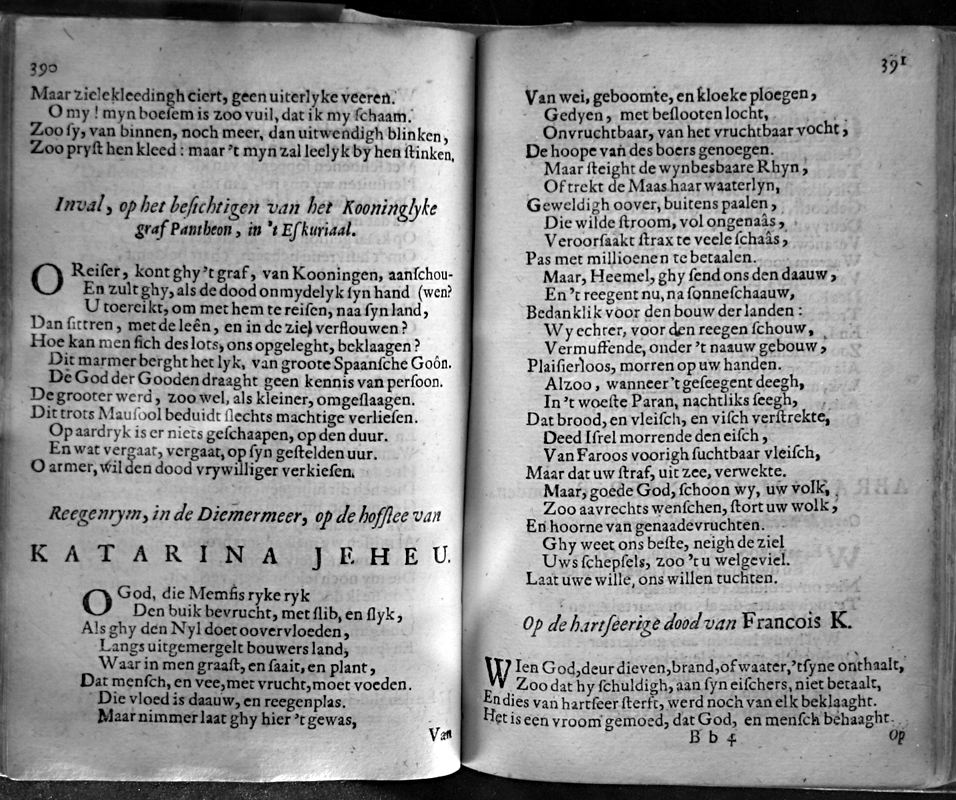 390
Maar zielekleedingh ciert, geen uiterlyke veeren.
O my! myn boeſem is zoo vuil, dat ik my ſchaam.
Zoo ſy, van binnen, noch meer, dan uitwendigh blinken,
Zoo pryſt hen kleed: maar 't myn zal leelyk by hen ſtinken.
Inval, op het beſichtigen van het Kooninglyke
graf Pantheon, in 't Eſkuriaal.
O Reiſer, kont ghy 't graf, van Kooningen, aanſchou-
En zult ghy, als de dood onmydelyk ſyn hand (wen?
U toereikt, om met hem te reiſen, naa ſyn land,
Dan ſittren, met de leên, en in de ziel verflouwen?
Hoe kan men ſich des lots, ons opgeleght, beklaagen?
Dit marmer berght het lyk, van groote Spaanſche Goôn.
De God der Gooden draaght geen kennis van perſoon.
De grooter werd, zoo wel, als kleiner, omgeſlaagen.
Dit trots Mauſool beduidt ſlechts machtige verlieſen.
Op aardryk is er niets geſchaapen, op den duur.
En wat vergaat, vergaat, op ſyn geſtelden uur.
O armer, wil den dood vrywilliger verkieſen.
Reegenrym, in de Diemermeer, op de hofſtee van
KATARINA JEHEU.
O God, die Memfis ryke ryk
Den buik bevrucht, met ſlib, en ſlyk,
Als ghy den Nyl doet oovervloeden,
Langs uitgemergelt bouwers land,
Waar in men graaft, en ſaait, en plant,
Dat menſch, en vee, met vrucht, moet voeden.
Die vloed is daauw, en reegenplas.
Maar nimmer laat ghy hier 't gewas,
Van
391
Van wei, geboomte, en kloeke ploegen,
Gedyen, met beſlooten locht,
Onvruchtbaar, van het vruchtbaar vocht,
De hoope van des boers genoegen.
Maar ſteight de wynbesbaare Rhyn,
Of trekt de Maas haar waaterlyn,
Geweldigh oover, buitens paalen,
Die wilde ſtroom, vol ongenaâs,
Veroorſaakt ſtrax te veele ſchaâs,
Pas met millioenen te betaalen.
Maar, Heemel, ghy ſend ons den daauw,
En 't reegent nu, na ſonneſchaauw,
Bedanklik voor den bouw der landen:
Wy echter, voor den reegen ſchouw,
Vermuffende, onder 't naauw gebouw,
Plaiſierloos, morren op uw handen.
Alzoo, wanneer 't geſeegent deegh,
In 't woeſte Paran, nachtliks ſeegh,
Dat brood, en vleiſch, en viſch verſtrekte,
Deed Iſrel morrende den eiſch,
Van Faroos voorigh ſuchtbaar vleiſch,
Maar dat uw ſtraf, uit zee, verwekte.
Maar, goede God, ſchoon wy, uw volk,
Zoo aavrechts wenſchen, ſtort uw wolk,
En hoorne van genaadevruchten.
Ghy weet ons beſte, neigh de ziel
Uws ſchepſels, zoo 't u welgeviel.
Laat uwe wille, ons willen tuchten.
Op de hartſeerige dood van Francois K.
WIen God, deur dieven, brand, of waater, 't ſyne onthaalt,
Zoo dat hy ſchuldigh, aan ſyn eiſchers, niet betaalt,
En dies van hartſeer ſterft, werd noch van elk beklaaght.
Het is een vroom gemoed, dat God, en menſch behaaght.
B b 4
Op